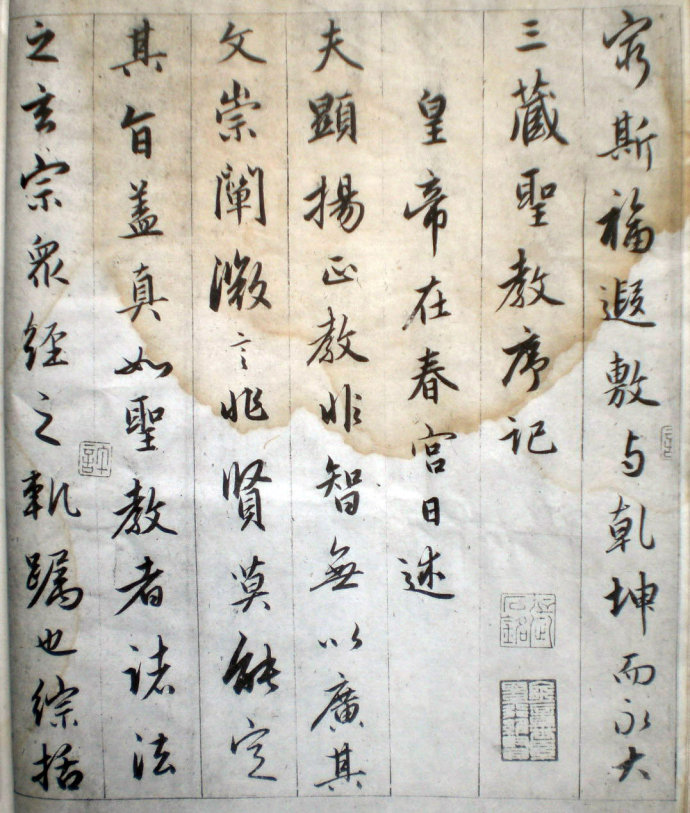 窮斯福遐敷与乾坤而永大
三藏聖教序記
皇帝在春宮日述
夫顯揚正教非智無以廣其
文崇闡微言非賢莫能定
其旨盖真如聖教者諸法
之玄宗衆經之軌躅也綜括